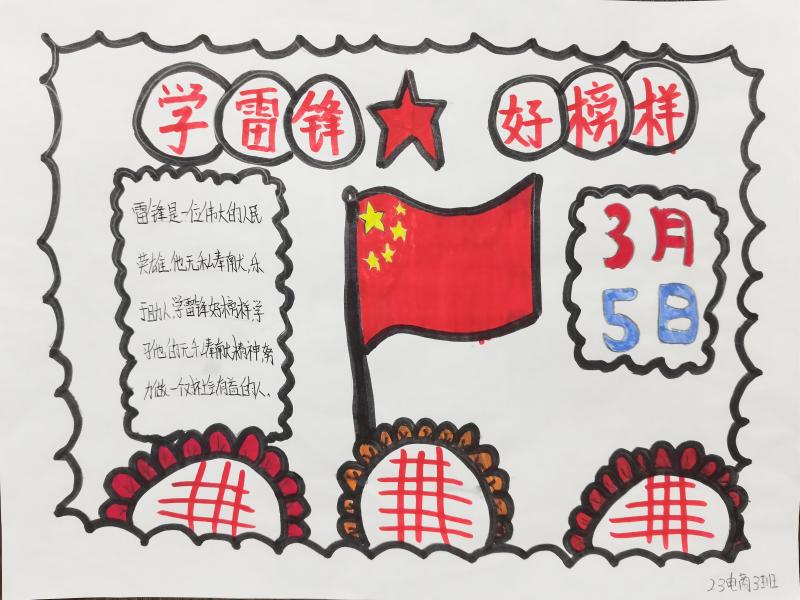 学雷锋 好榜样
雷锋是一位伟大的人民
英雄,他无私奉献,乐
于助人,学雷锋好榜样学
习他的无私奉献精神努
力做一个对社会有益的人。
3月
5日
23电商3班